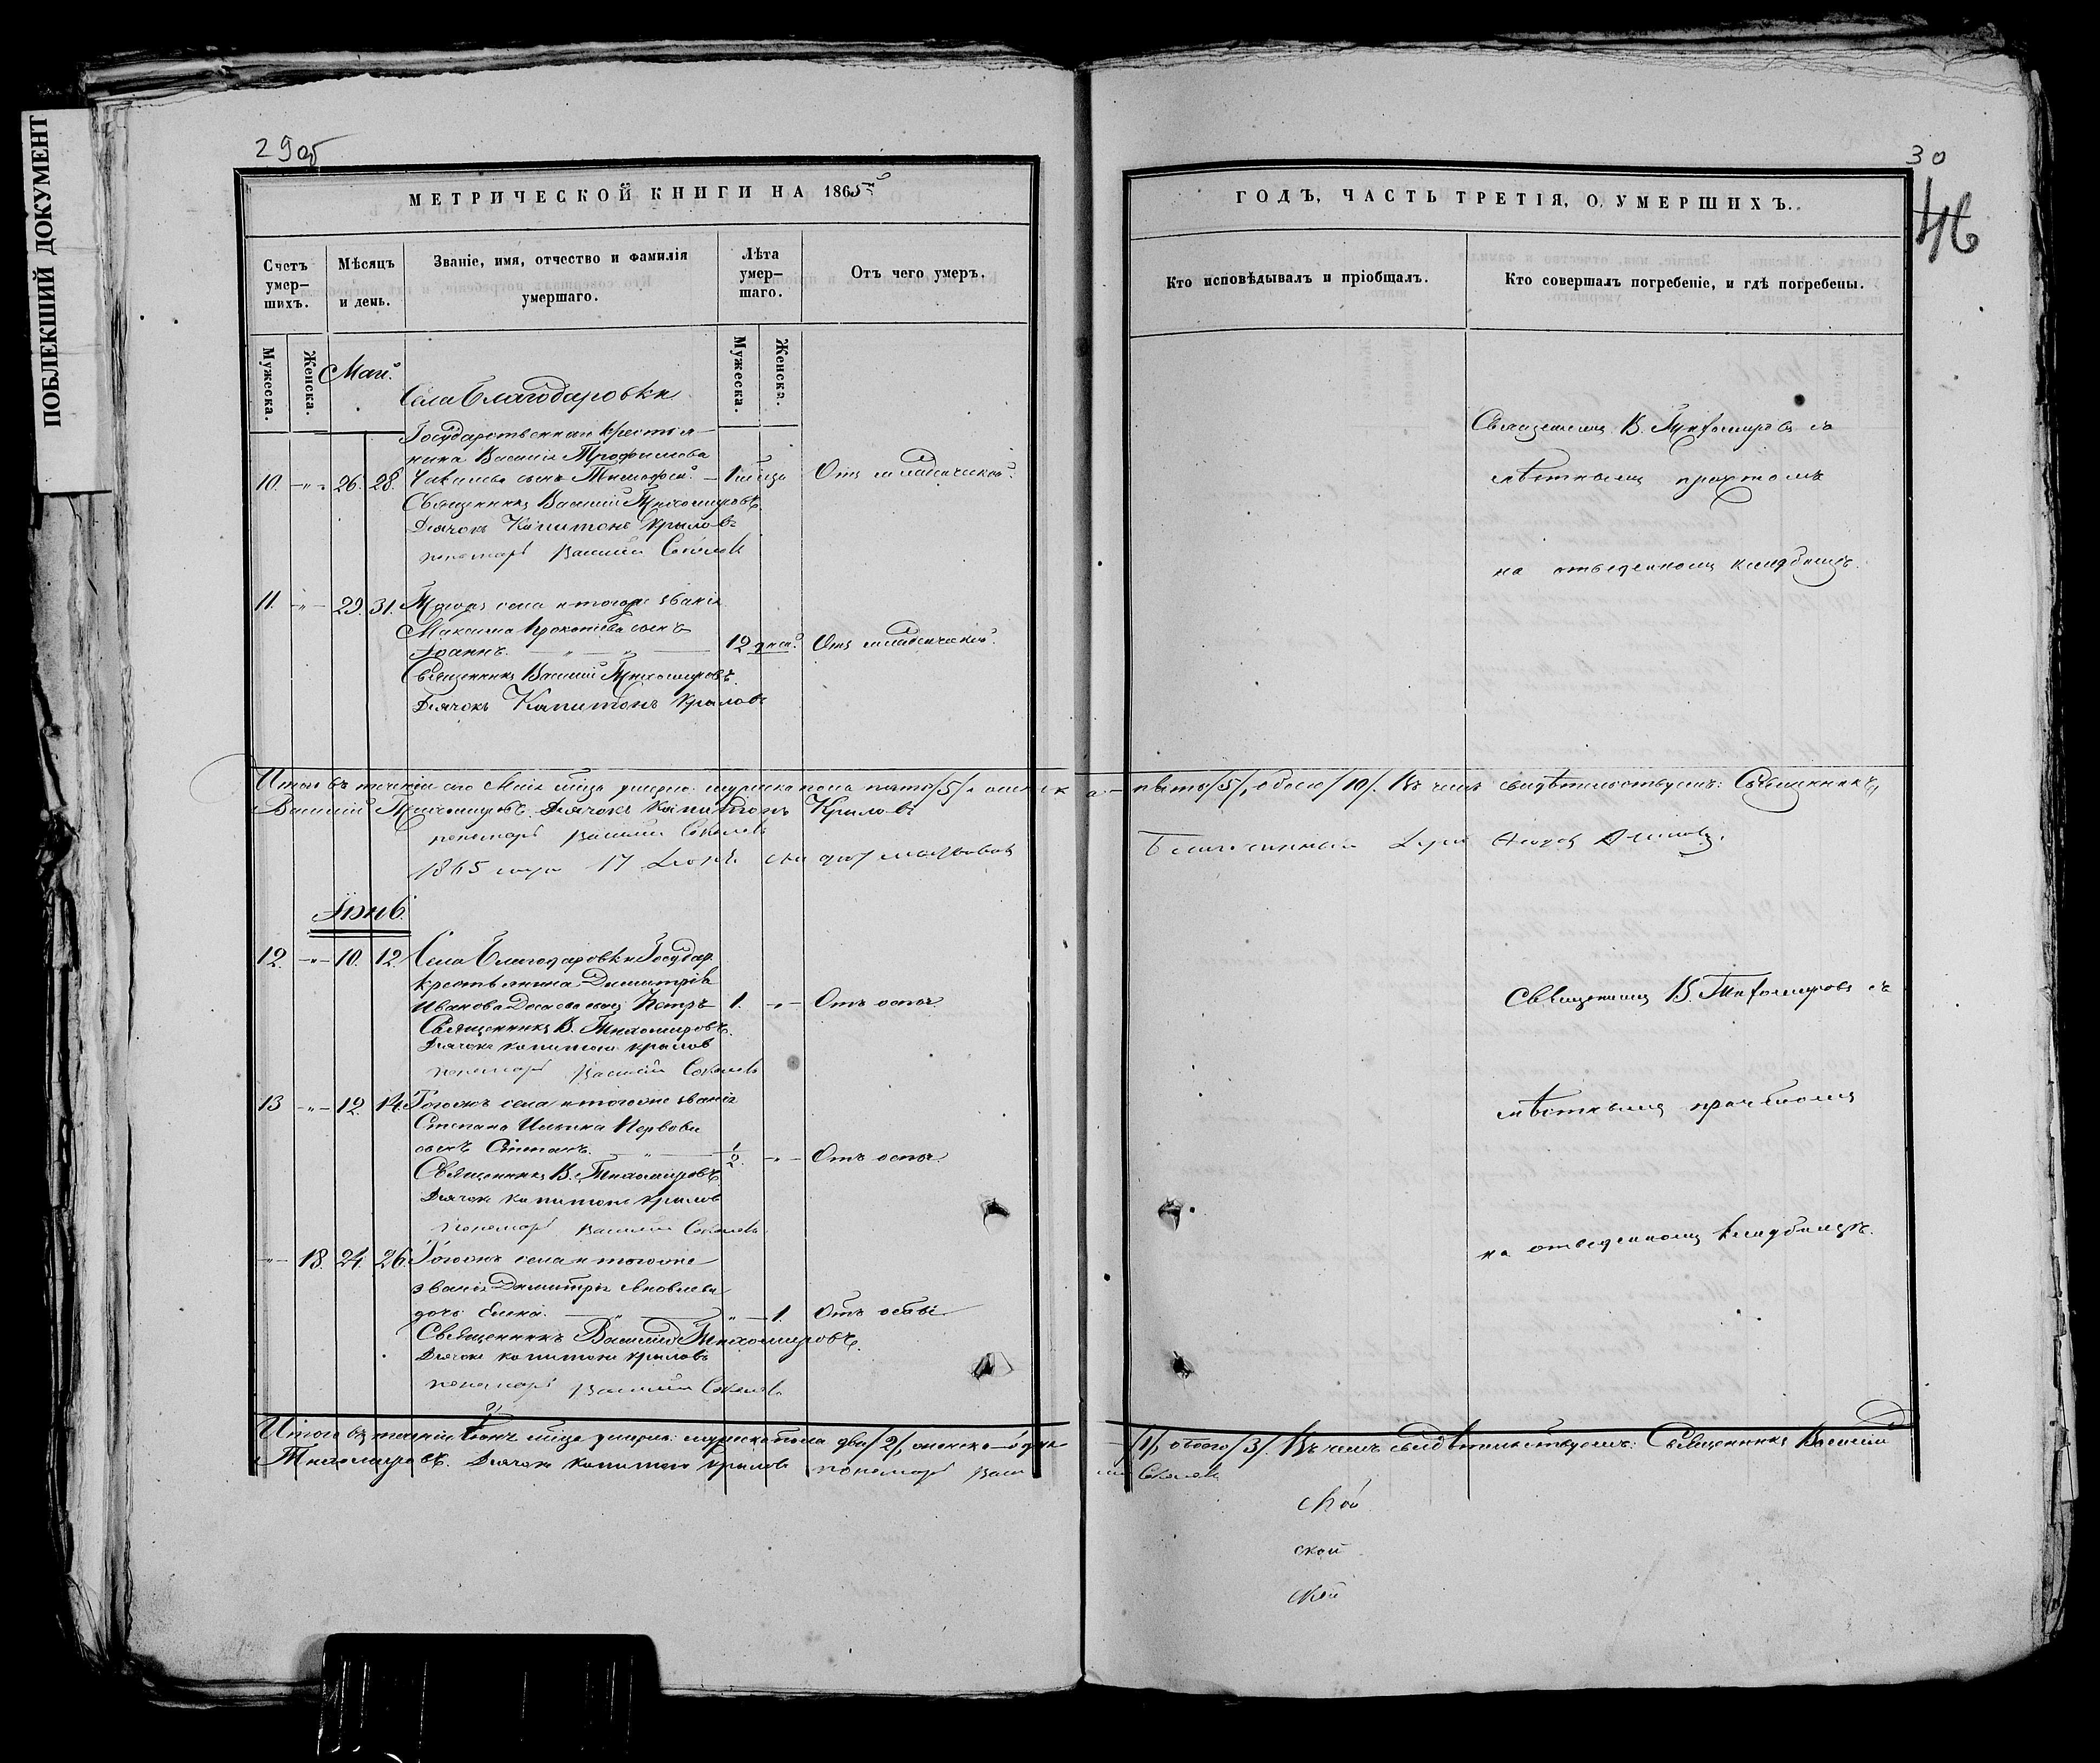 ПОБЛЕКШИЙ ДОКУМЕНТ
29об
МЕТРИЧЕСКОЙ КНИГИ НА 1865й
Счетъ умер-шихъ.
Мѣсяцъ и день.
Званіе, имя, отчество и фамилія умершаго.
Лѣта умер-шаго.
Отъ чего умеръ.
Мужеска.
Женска.
Мужеска.
Женска.
Маій
Села Благодаровки
Государственнаго крестья-
нина Василія Трофимова
10. -"- 26. 28. сынъ Тимофей. Отъ младенческой.
Священникъ Василий Тихомировъ
Дьячокъ Капитонъ Крыловъ
пономарь Василий Соколовъ
11. -"- 29. 31. Тогожъ села и тогоже званія
Максима Прокопьева сынъ
Іоаннъ. 12 дней. Отъ младенческой.
Священникъ Василий Тихомировъ.
Дьячокъ Капитонъ Крыловъ
Итого въ теченіи сего Маія мѣсяца умерло: мужеска пола пять /5/, а женска -
Василий Тихомировъ. Дьячокъ Капитонъ Крыловъ
пономарь Василий Соколовъ
1865 года 17 Іюня
Іюнь.
12. -"- 10. 12. Села Благодаровки Государ.
крестьянина Димитрія
Иванова сынъ Петръ 1. -"- Отъ оспы.
Священникъ В. Тихомировъ.
Дьячокъ Капитонъ Крылов
пономарь Василий Соколовъ
13 -"- 12. 14. Тогожъ села и тогоже званія
Степана Ильина
сынъ Степанъ. 1/2. -"- Отъ оспы.
Священникъ В. Тихомировъ.
Дьячокъ Капитонъ Крылов
пономарь Василий Соколовъ
-"- 18. 24. 26. Тогожъ села и тогоже
званія Димитрія Яковлева
дочь Елена. -"- 1. Отъ оспы
Священникъ Василий Тихомировъ.
Дьячокъ Капитонъ Крыловъ
пономарь Василий Соколовъ
Итого въ теченіи Іюня мѣсяца умерло: мужеска пола два /2/, женска - одна
Тихомировъ. Дьячокъ Капитонъ Крыловъ пономарь Васи
30
46
ГОДЪ, ЧАСТЬ ТРЕТІЯ, О УМЕРШИХЪ.
Кто исповѣдывалъ и пріобщалъ.
Кто совершалъ погребеніе, и гдѣ погребены.
Священникъ В. Тихомировъ съ
мѣстнымъ причтомъ
на отведенномъ кладбищѣ.
- пять /5/, обоего /10/. Въ чемъ свидѣтельствуемъ: Священникъ,
Благочинный Іерей
Священникъ В. Тихомировъ съ
мѣстнымъ причтомъ
на отведенномъ кладбищѣ.
- /1/, обоего /3/. Въ чемъ свидѣтельствуемъ: Священникъ Василий
лий Соколовъ
ской
ской
ской